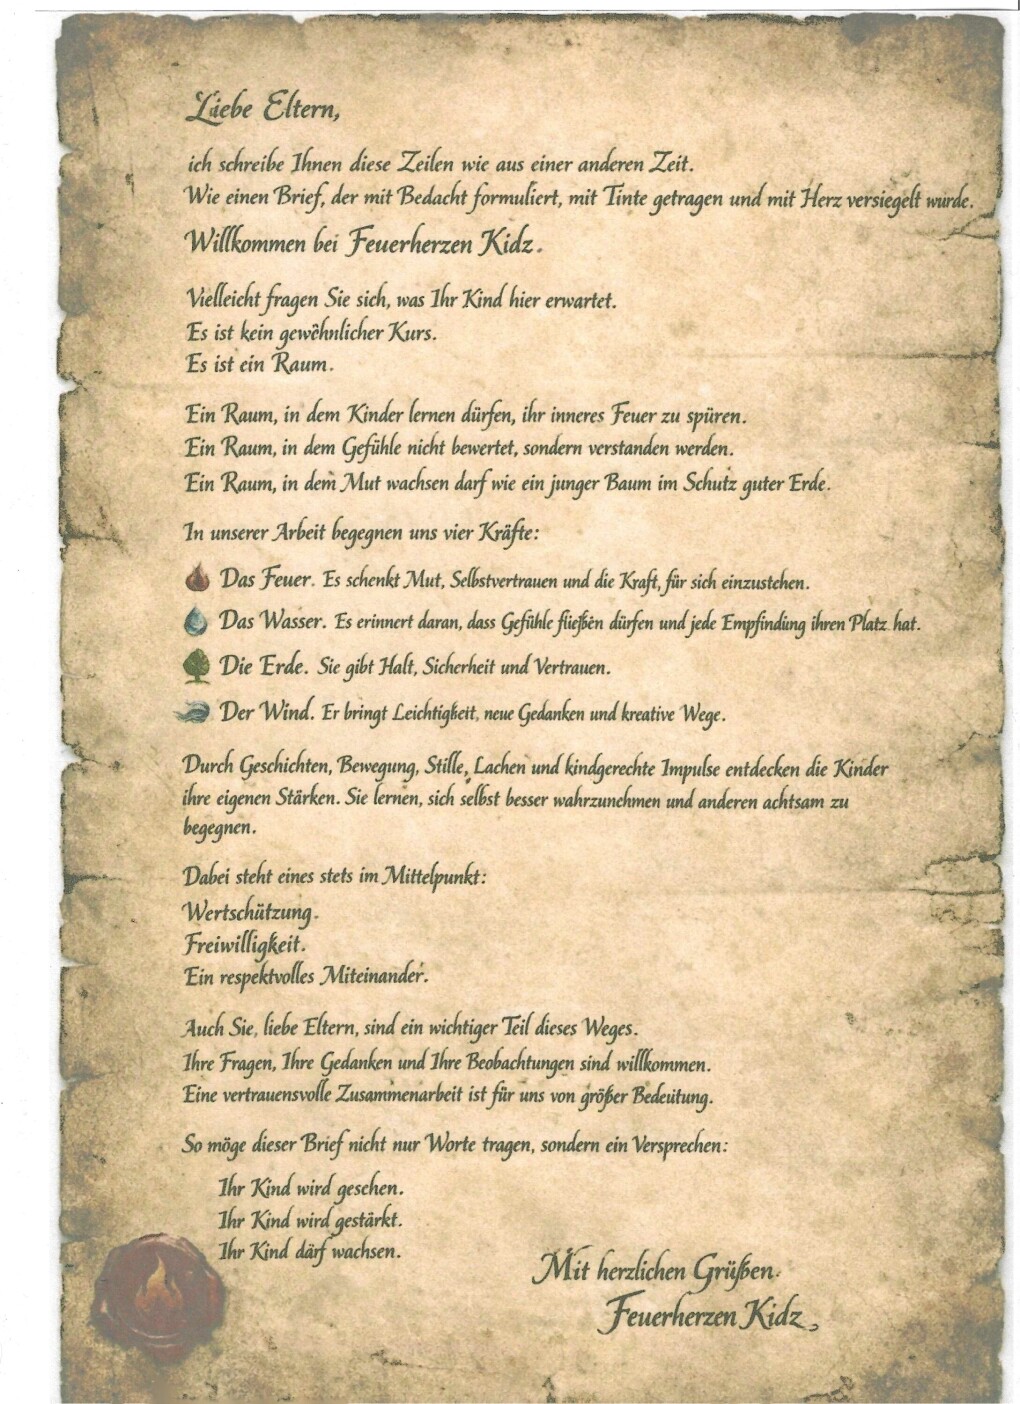 Liebe Eltern,
ich schreibe Ihnen diese Zeilen wie aus einer anderen Zeit.
Wie einen Brief, der mit Bedacht formuliert, mit Tinte getragen und mit Herz versiegelt wurde.
Willkommen bei Feuerherzen Kidz.
Vielleicht fragen Sie sich, was Ihr Kind hier erwartet.
Es ist kein gewöhnlicher Kurs.
Es ist ein Raum.
Ein Raum, in dem Kinder lernen dürfen, ihr inneres Feuer zu spüren.
Ein Raum, in dem Gefühle nicht bewertet, sondern verstanden werden.
Ein Raum, in dem Mut wachsen darf wie ein junger Baum im Schutz guter Erde.
In unserer Arbeit begegnen uns vier Kräfte:
Das Feuer. Es schenkt Mut, Selbstvertrauen und die Kraft, für sich einzustehen.
Das Wasser. Es erinnert daran, dass Gefühle fließen dürfen und jede Empfindung ihren Platz hat.
Die Erde. Sie gibt Halt, Sicherheit und Vertrauen.
Der Wind. Er bringt Leichtigkeit, neue Gedanken und kreative Wege.
Durch Geschichten, Bewegung, Stille, Lachen und kindgerechte Impulse entdecken die Kinder
ihre eigenen Stärken. Sie lernen, sich selbst besser wahrzunehmen und anderen achtsam zu
begegnen.
Dabei steht eines stets im Mittelpunkt:
Wertschützung.
Freiwilligkeit.
Ein respektvolles Miteinander.
Auch Sie, liebe Eltern, sind ein wichtiger Teil dieses Weges.
Ihre Fragen, Ihre Gedanken und Ihre Beobachtungen sind willkommen.
Eine vertrauensvolle Zusammenarbeit ist für uns von größer Bedeutung.
So möge dieser Brief nicht nur Worte tragen, sondern ein Versprechen:
Ihr Kind wird gesehen.
Ihr Kind wird gestärkt.
Ihr Kind därf wachsen.
Mit herzlichen Grüßen.
Feuerherzen Kidz,